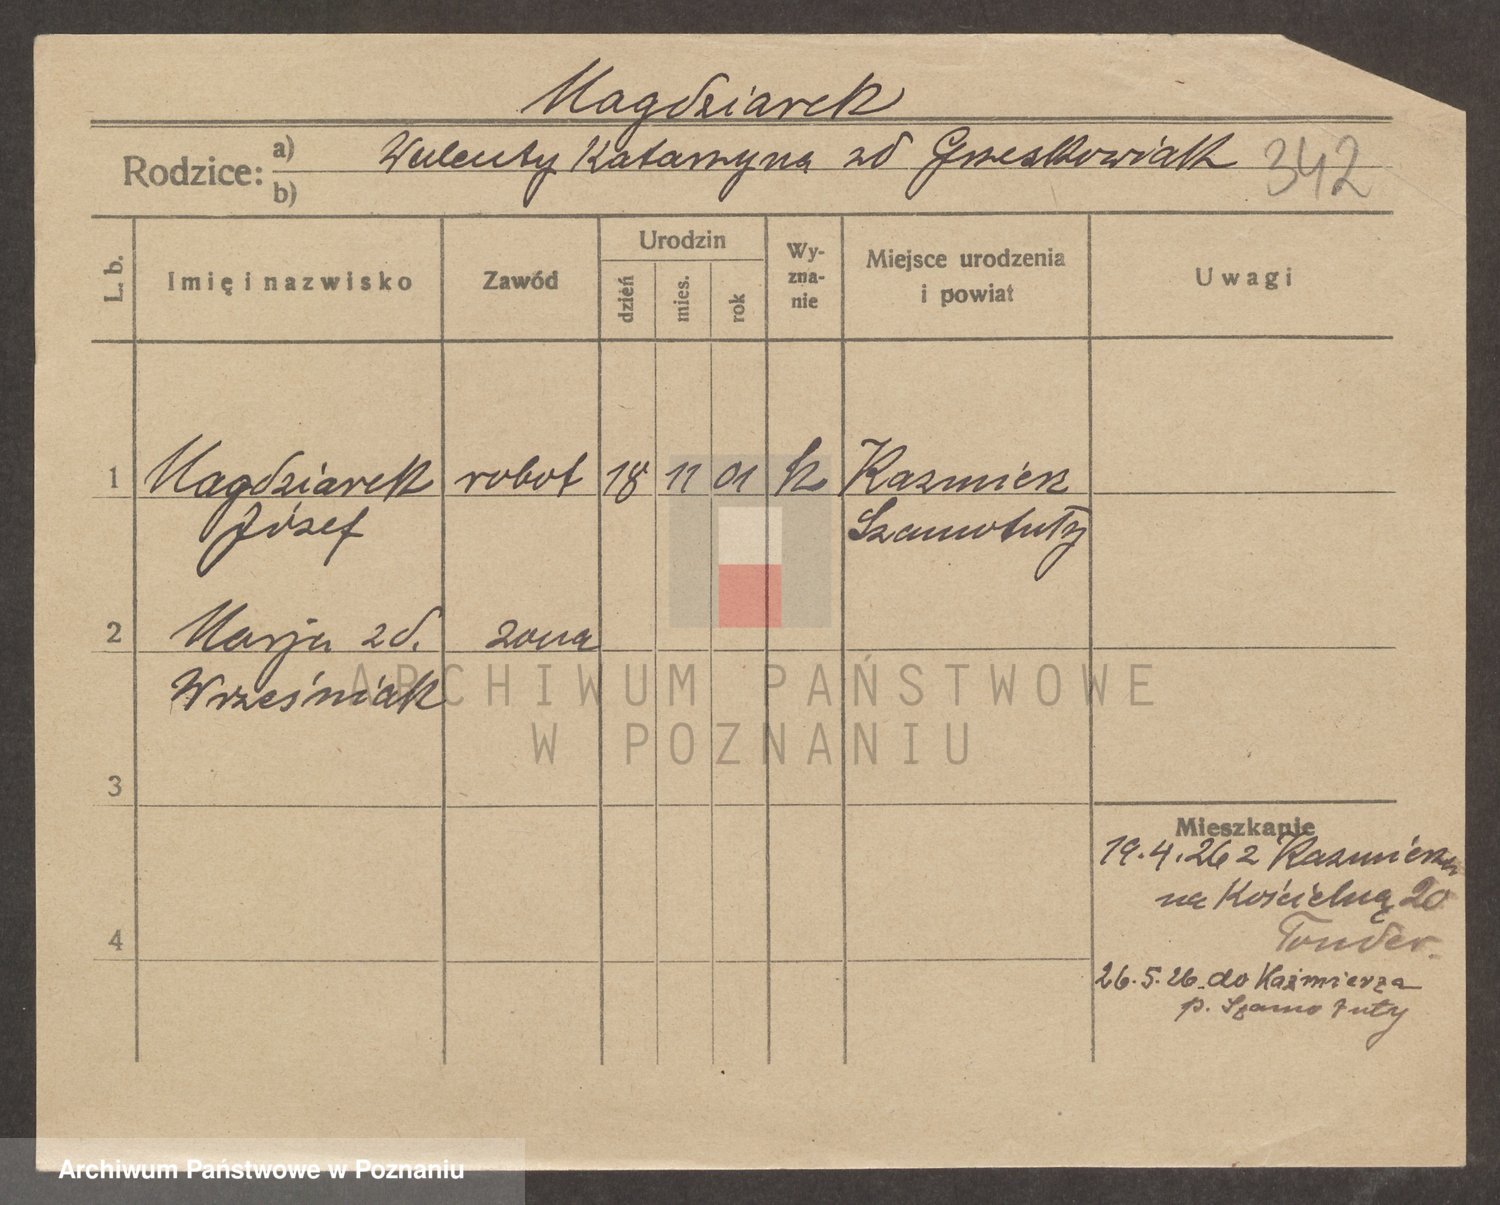 Magdziarek
Rodzice: a) Walenty Katarzyna zd Grzeskowiak 342
b)
L. b. Imię i nazwisko Zawód Urodzin dzień mies. rok Wy-zna-nie Miejsce urodzenia i powiat Uwagi
1 Magdziarek robot 18 11 01 k Kazmierz
Józef Szamotuły
2 Marja zd. zona
Wrześniak
3
Mieszkanie
19.4.26 z Kazmierza
na Kościelną 20
4 Tonder.
26.5.26. do Kaźmierza
p. Szamotuły
ARCHIWUM PAŃSTWOWE
W POZNANIU
Archiwum Państwowe w Poznaniu